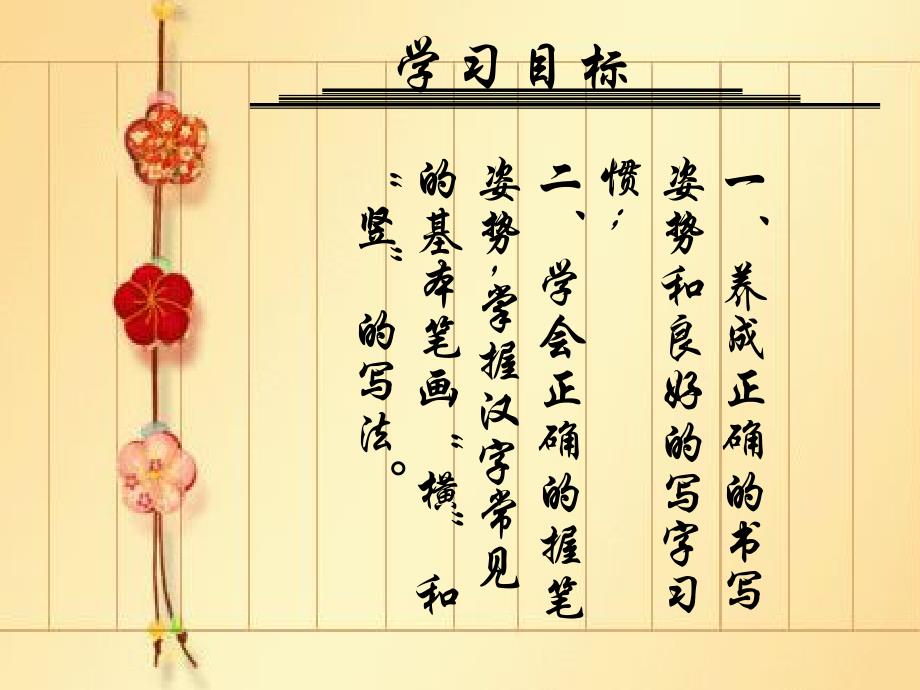 学习目标
一、养成正确的书写
姿势和良好的写字习
惯；
二、学会正确的握笔
姿势，掌握汉字常见
的基本笔画“横”和
“竖”的写法。